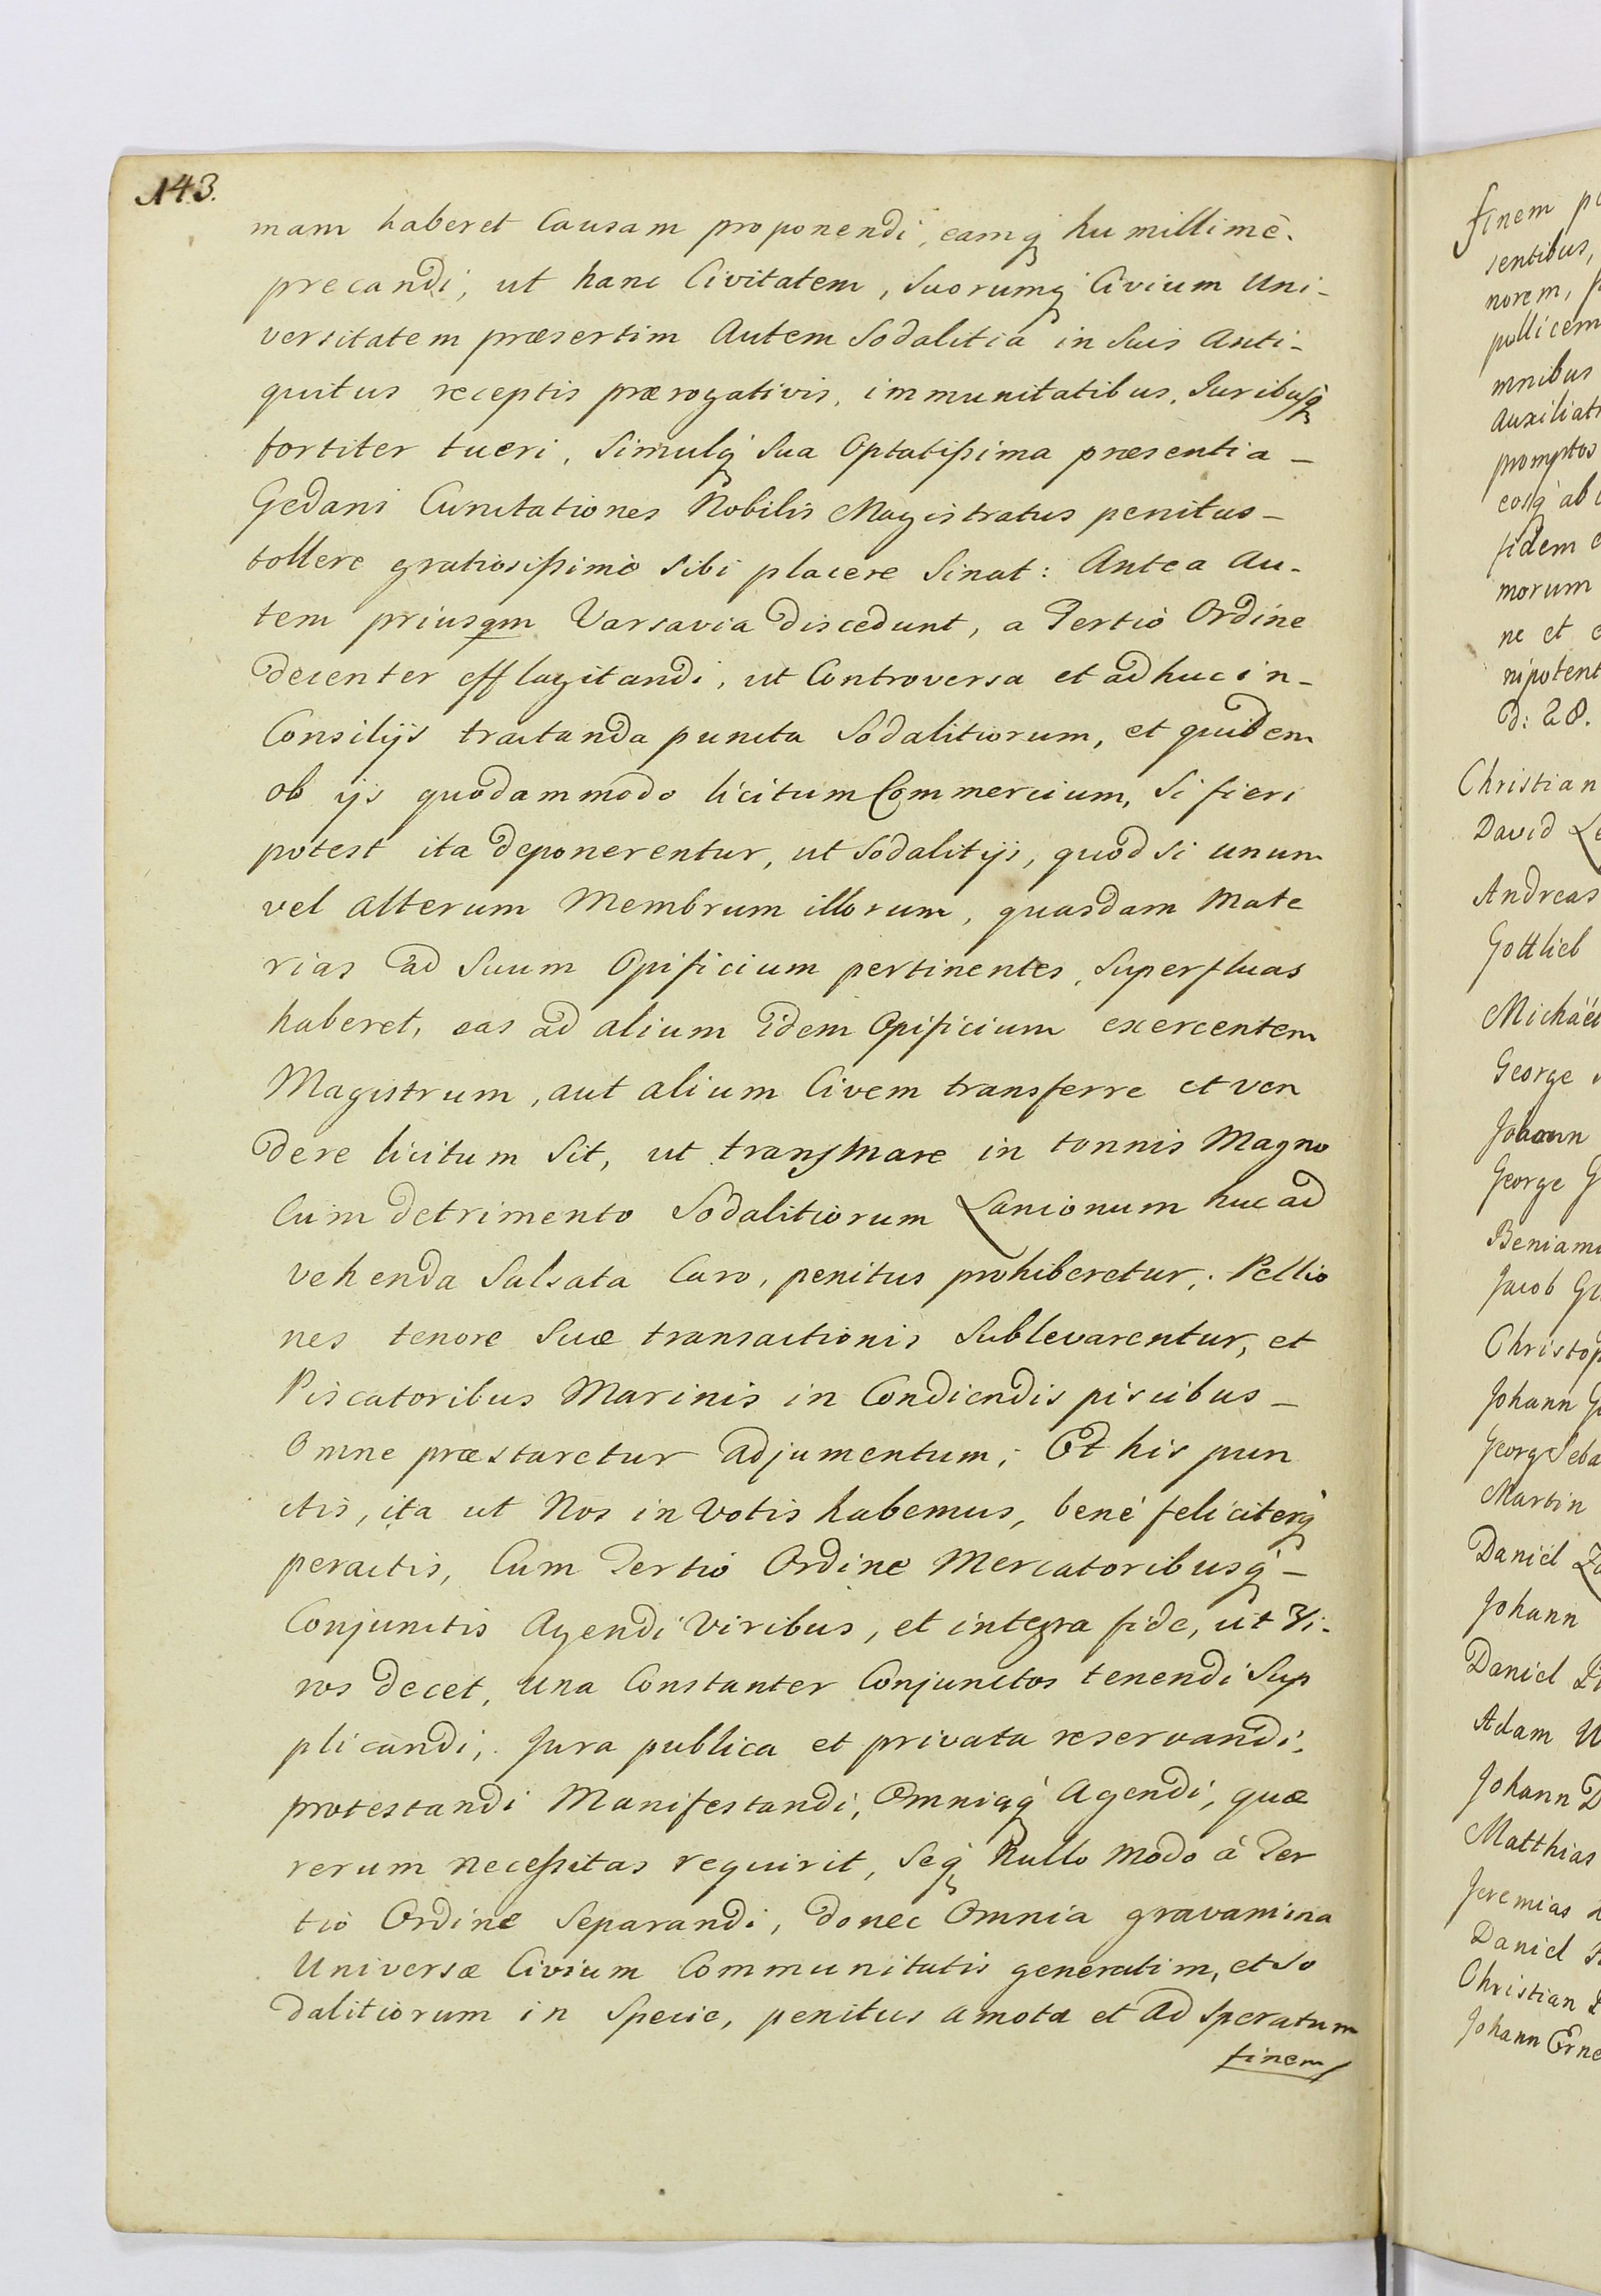 143.
mam haberet Causam proponendi, eamq́ humillimè
precandi, ut hanc Civitatem, Suorumq́ Civium Uni-
versitatem præsertim Autem Sodalitia in Suis Anti-
quitus receptis prærogativis, immunitatibus, Juribusq́
fortiter tueri, Simulq́ Sua Optatißima præsentia -
Gedani Cunctationes Nobilis Magistratus penitus -
tollere gratiosißimè sibi placere Sinat: Antea Au-
tem priusqm Varsavia discedunt, a Tertiò Ordine
decenter efflagitandi, ut Controversa et adhuc in-
Consilijs tractanda puncta Sodalitiorum, et quidem
ob ijs quodammodo licitum Commercium, Si fieri
potest ita deponerentur, ut Sodalitijs, quod si unum
vel alterum Membrum illorum, quasdam Mate
rias ad Suum Opificium pertinentes, Superfluas
haberet, eas ad alium idem Opificium exercentem
Magistrum, aut alium Civem transferre et ven
dere licitum Sit, ut transmare in tonnis Magno
Cum detrimento Sodalitiorum Lanionum huc ad
vehenda Salsata Caro, penitus prohiberetur; Pellio
nes tenore Suæ transactionis Sublevarentur, et
Piscatoribus Marinis in Condiendis piscibus -
Omne præstaretur adjumentum; Et his pun
ctis, ita ut Nos in Votis habemus, benè feliciterq́
peractis, Cum Tertiò Ordine Mercatoribusq́ -
Conjunctis Agendi Viribus, et integra fide, ut Vi-
ros decet, Una Constanter Conjunctos tenendi Sup
plicandi, Jura publica et privata reservandi,
protestandi Manifestandi, Omniaq́ Agendi, quæ
rerum neceßitas requirit, Seq́ Nullo Modo à Ter
tiò Ordine Separandi, donec Omnia gravamina
Universæ Civium Communitatis generatim, et So
dalitiorum in Specie, penitus amota et ad Speratum
finem
finem
sentibus,
norem,
pollicem
mnibus
Auxiliat
promptos
eosq́ ab
fidem
morum
ne et
nipotent
d: 28.
Christian
David
Andreas
Gottlieb
Michäel
George
Johann
George G
Beniami
Jacob
Christop
Johann
Georg Seba
Martin
Daniel
Johann
Daniel
Adam
Johann D
Matthias
Jeremias
Daniel
Christian
Johann Erne